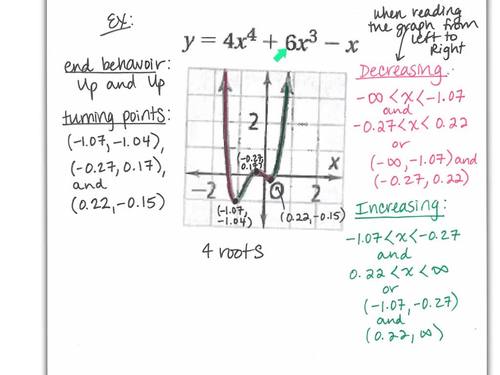 Ex:
y = 4x⁴ + 6x³ − x
end behavoir:
Up and Up
turning points:
(-1.07, -1.04),
(-0.27, 0.17),
and
(0.22, -0.15)
2
(-0.27,
0.17)
x
-2
2
(-1.07,
-1.04)
(0.22, -0.15)
4 roots
when reading
the graph from
left to
Right
Decreasing:
-∞ < x < -1.07
and
-0.27 < x < 0.22
or
(-∞, -1.07) and
(-0.27, 0.22)
Increasing:
-1.07 < x < -0.27
and
0.22 < x < ∞
or
(-1.07, -0.27)
and
(0.22, ∞)